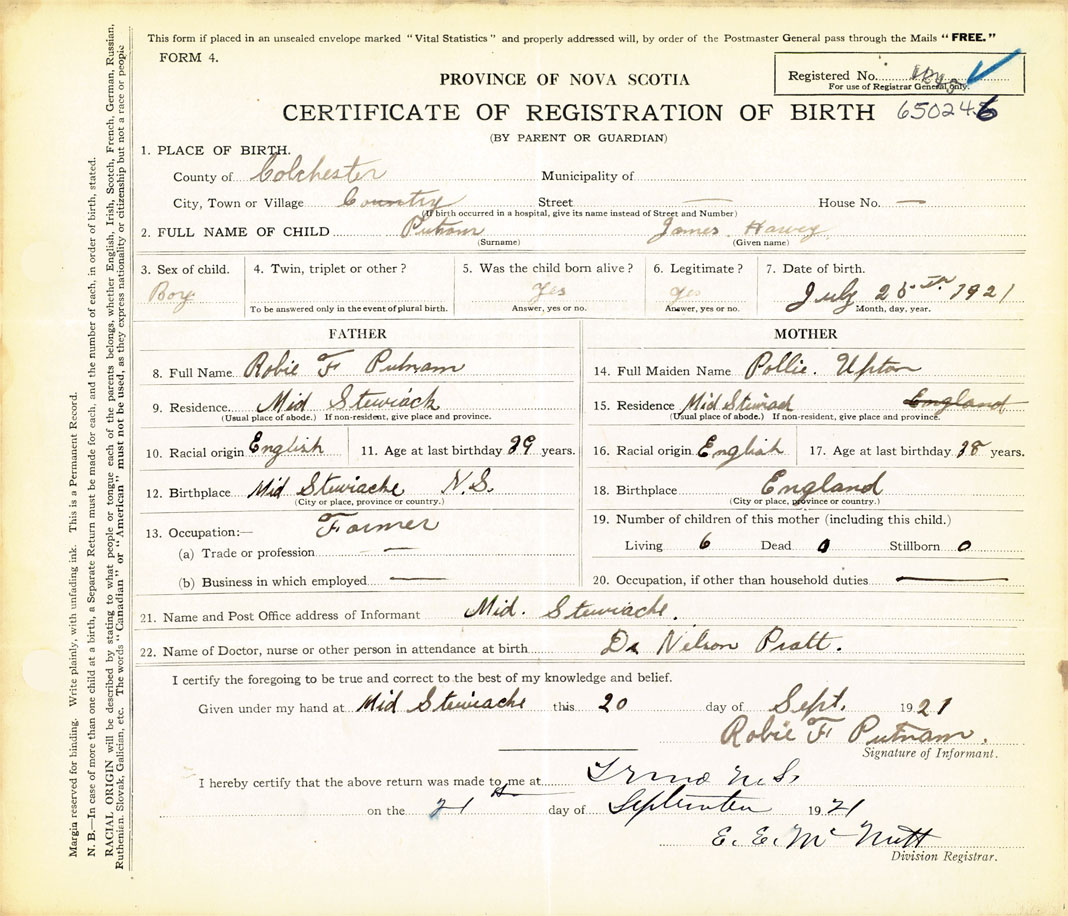 This form if placed in an unsealed envelope marked "Vital Statistics" and properly addressed will, by order of the Postmaster General pass through the Mails "FREE."
FORM 4.
PROVINCE OF NOVA SCOTIA
Registered No.
For use of Registrar General only.
CERTIFICATE OF REGISTRATION OF BIRTH 650246
(BY PARENT OR GUARDIAN)
1. PLACE OF BIRTH.
County of Colchester Municipality of
City, Town or Village Country Street — House No. —
(If birth occurred in a hospital, give its name instead of Street and Number)
2. FULL NAME OF CHILD Putnam James Harvey
(Surname) (Given name)
3. Sex of child. 4. Twin, triplet or other? 5. Was the child born alive? 6. Legitimate? 7. Date of birth.
Boy Yes Yes July 1921
To be answered only in the event of plural birth. Answer, yes or no. Answer, yes or no. Month, day, year.
FATHER MOTHER
8. Full Name Robie F Putnam 14. Full Maiden Name Pollie. Upton
9. Residence Mid Stewiack 15. Residence Mid Stewiack England
(Usual place of abode.) If non-resident, give place and province. (Usual place of abode.) If non-resident, give place and province.
10. Racial origin English 11. Age at last birthday 39 years. 16. Racial origin English 17. Age at last birthday 38 years.
12. Birthplace Mid Stewiacke N.S. 18. Birthplace England
(City or place, province or country.) (City or place, province or country.)
13. Occupation:— Farmer 19. Number of children of this mother (including this child.)
(a) Trade or profession — Living 6 Dead 0 Stillborn 0
(b) Business in which employed — 20. Occupation, if other than household duties —
21. Name and Post Office address of Informant Mid. Stewiacke.
22. Name of Doctor, nurse or other person in attendance at birth Dr Nelson Pratt.
I certify the foregoing to be true and correct to the best of my knowledge and belief.
Given under my hand at Mid Stewiacke this 20 day of Sept. 1921
Robie F Putnam.
Signature of Informant.
I hereby certify that the above return was made to me at N.S.
on the 21st day of September 1921
E. E. McNutt
Division Registrar.
Margin reserved for binding. Write plainly, with unfading ink. This is a Permanent Record.
N. B.—In case of more than one child at a birth, a Separate Return must be made for each, and the number of each, in order of birth, stated.
RACIAL ORIGIN will be described by stating to what people or tongue each of the parents belongs, whether English, Irish, Scotch, French, German, Russian,
Ruthenian, Slovak, Galician, etc. The words "Canadian" or "American" must not be used, as they express nationality or citizenship but not a race or people